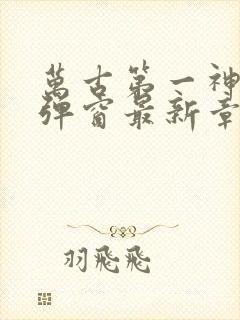 萬古第一神
彈窗最新章
羽飛飛